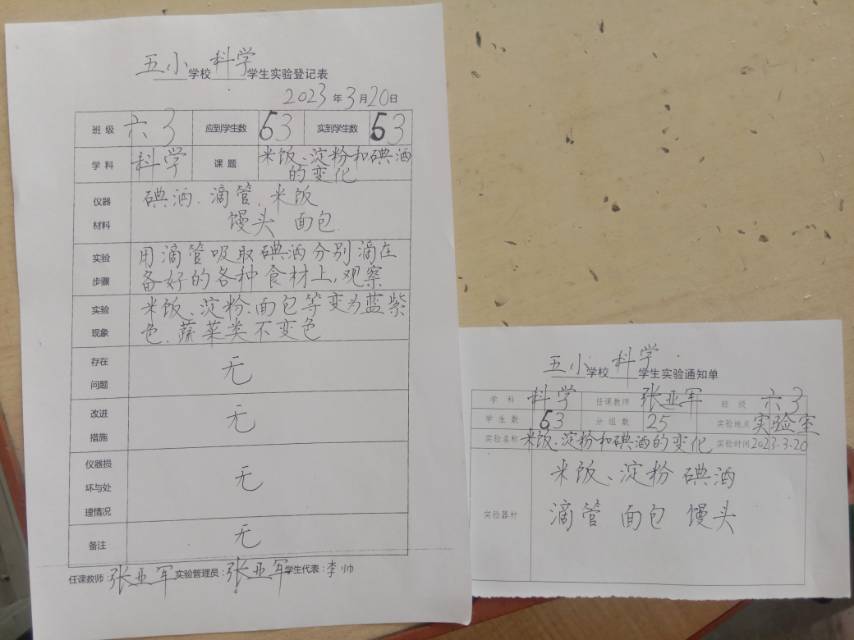 五小学校科学学生实验登记表
2023年3月20日
班级 六3 应到学生数 53 实到学生数 53
学科 科学 课题 米饭、淀粉和碘酒
的变化
仪器 碘酒、滴管、米饭
材料 馒头 面包
实验 用滴管吸取碘酒分别滴在
步骤 备好的各种食材上,观察
实验 米饭、淀粉、面包等变为蓝紫
现象 色,蔬菜类不变色
存在
问题 无
改进
措施 无
仪器损
坏与处 无
理情况
备注 无
任课教师:张亚军 实验管理员:张亚军 学生代表:李帅
五小学校科学学生实验通知单
学科 科学 任课教师 张亚军 班级 六3
学生数 53 分组数 25 实验地点 实验室
实验名称 米饭、淀粉和碘酒的变化 实验时间 2023.3.20
米饭、淀粉 碘酒
实验器材 滴管 面包 馒头